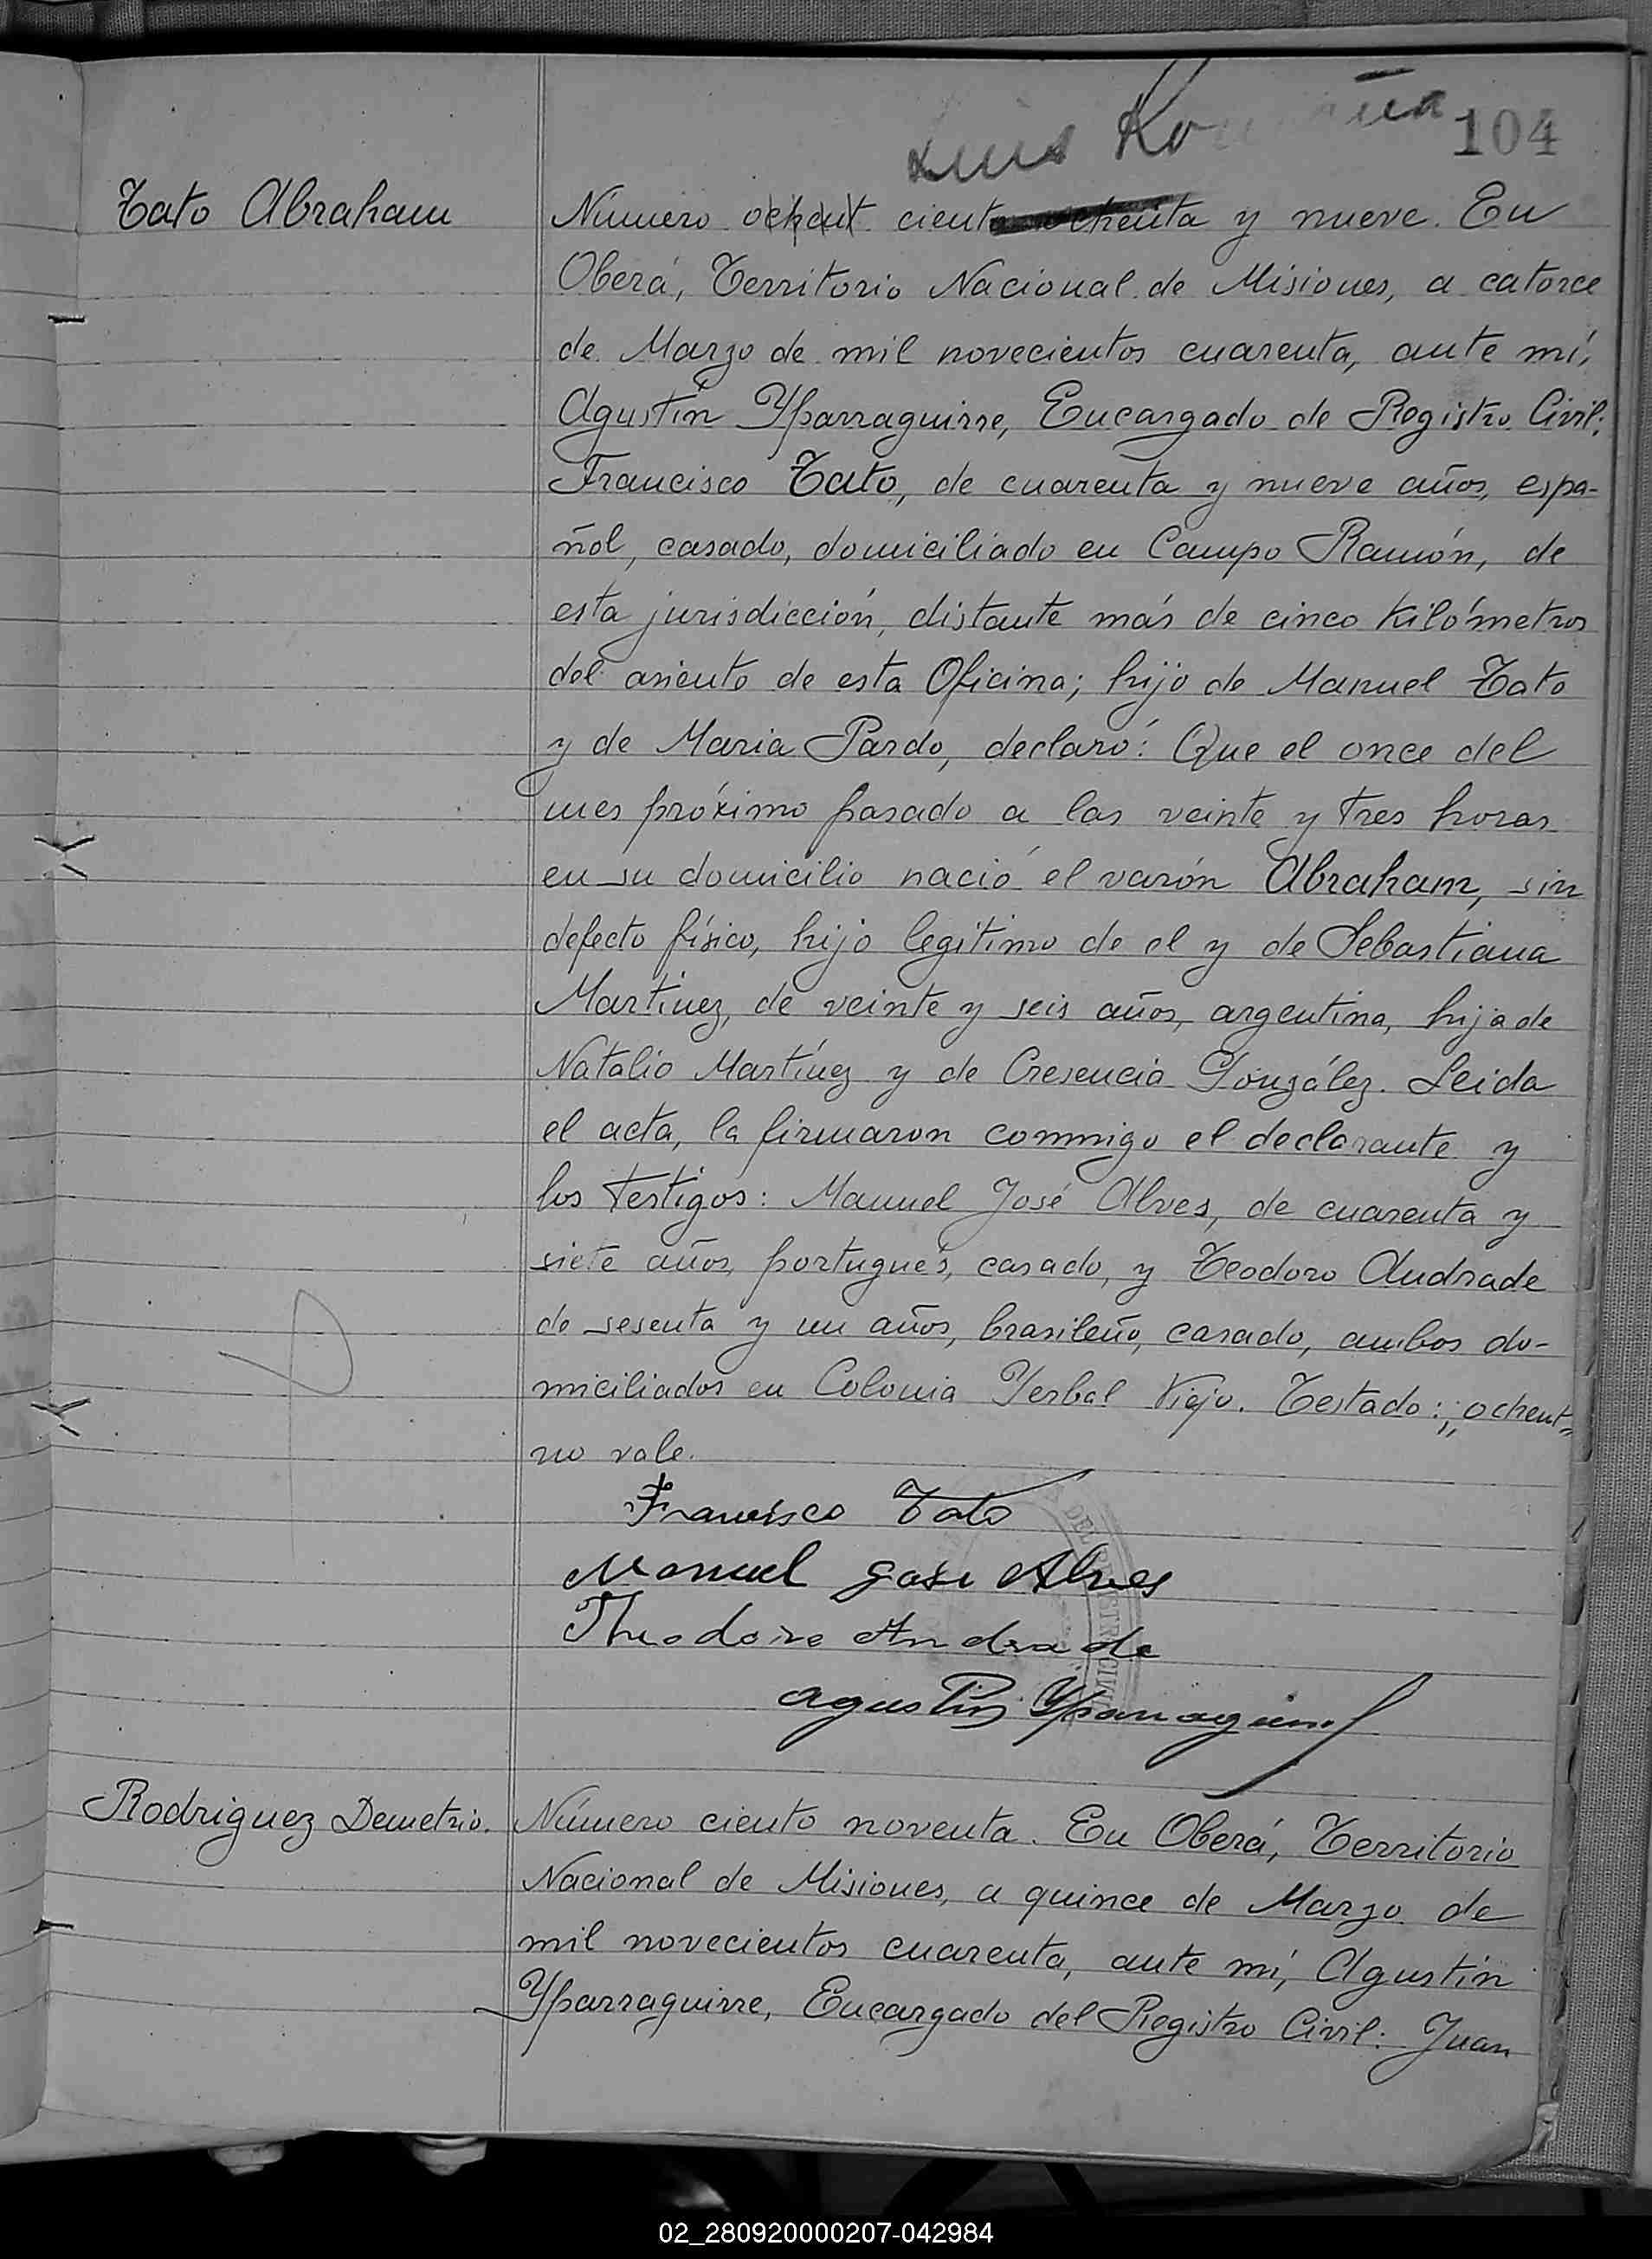 Luis
104
Tato Abraham
Número ochent ciento ochenta y nueve. En
Oberá, Territorio Nacional de Misiones, a catorce
de Marzo de mil novecientos cuarenta, ante mí,
Agustín Yparraguirre, Encargado de Registro Civil:
Francisco Tato, de cuarenta y nueve años, espa-
ñol, casado, domiciliado en Campo Ramón, de
esta jurisdicción, distante más de cinco kilómetros
del asiento de esta Oficina; hijo de Manuel Tato
y de Maria Pardo, declaró: Que el once del
mes próximo pasado a las veinte y tres horas
en su domicilio nació el varón Abraham, sin
defecto físico, hijo legitimo de el y de Sebastiana
Martinez, de veinte y seis años, argentina, hija de
Natalio Martínez y de Cresencia González. Leida
el acta, la firmaron conmigo el declarante y
los testigos: Manuel José Alves, de cuarenta y
siete años, portugués, casado, y Teodoro Andrade
de sesenta y un años, brasileño, casado, ambos do-
miciliados en Colonia Yerbal Viejo. Testado: „ochent„
no vale.
Francisco Tato
Manuel Jose Alves
Theodoro Andrade
Agustin Yparraguirre
Rodriguez Demetrio.
Número ciento noventa. En Oberá, Territorio
Nacional de Misiones, a quince de Marzo de
mil novecientos cuarenta, ante mí, Agustín
Yparraguirre, Encargado del Registro Civil: Juan
02_280920000207-042984